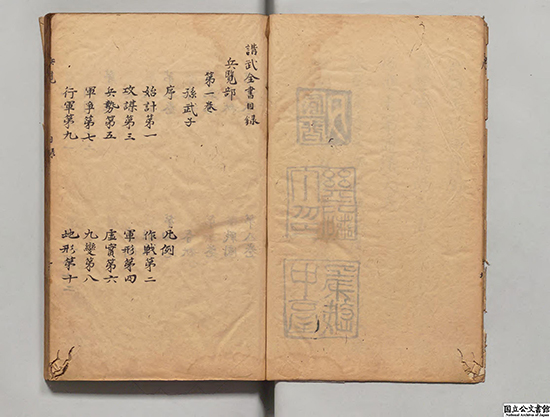 講武全書目録
兵覽部
第一巻
孫武子
序　凡例
始計第一　作戰第二
攻謀第三　軍形第四
兵勢第五　虛實第六
軍爭第七　九變第八
行軍第九　地形第十
国立公文書館
National Archives of Japan